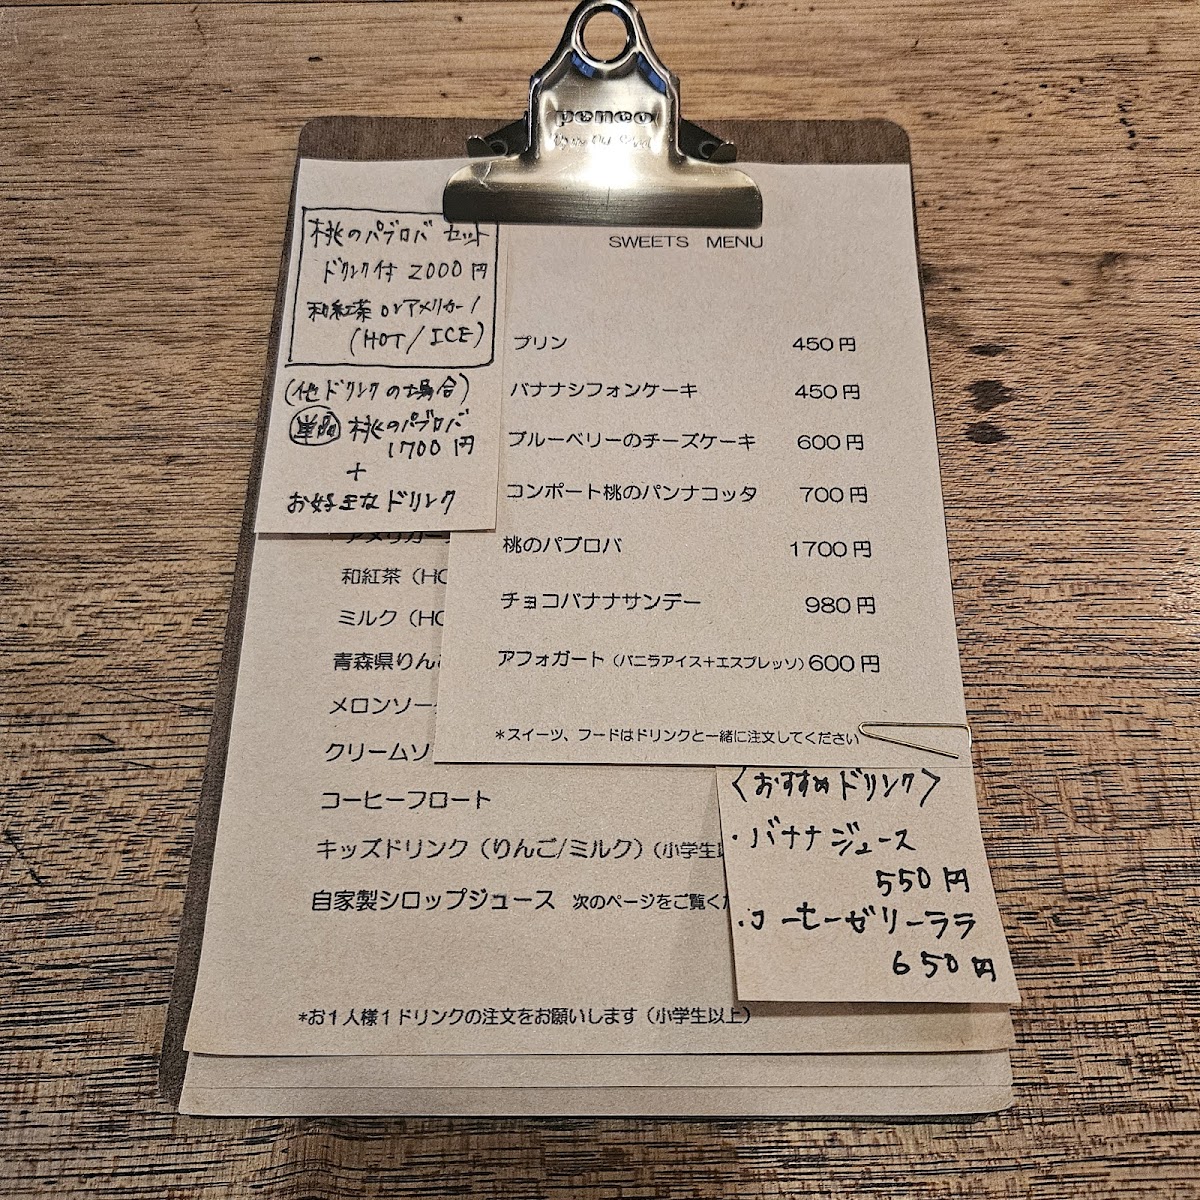 penco
SWEETS MENU
プリン 450円
バナナシフォンケーキ 450円
ブルーベリーのチーズケーキ 600円
コンポート桃のパンナコッタ 700円
桃のパブロバ 1700円
チョコバナナサンデー 980円
アフォガート(バニラアイス+エスプレッソ)600円
*スイーツ、フードはドリンクと一緒に注文してください
桃のパブロバ セット
ドリンク付 2000円
和紅茶 or アメリカーノ
(HOT/ICE)
(他ドリンクの場合)
単品 桃のパブロバ
1700円
+
お好きなドリンク
アメリカー
和紅茶(HO
ミルク(HO
青森県りんご
メロンソー
クリームソ
コーヒーフロート
キッズドリンク(りんご/ミルク)(小学生以
自家製シロップジュース 次のページをご覧くだ
*お1人様1ドリンクの注文をお願いします(小学生以上)
〈おすすめドリンク〉
・バナナジュース
550円
・コーヒーゼリーララ
650円